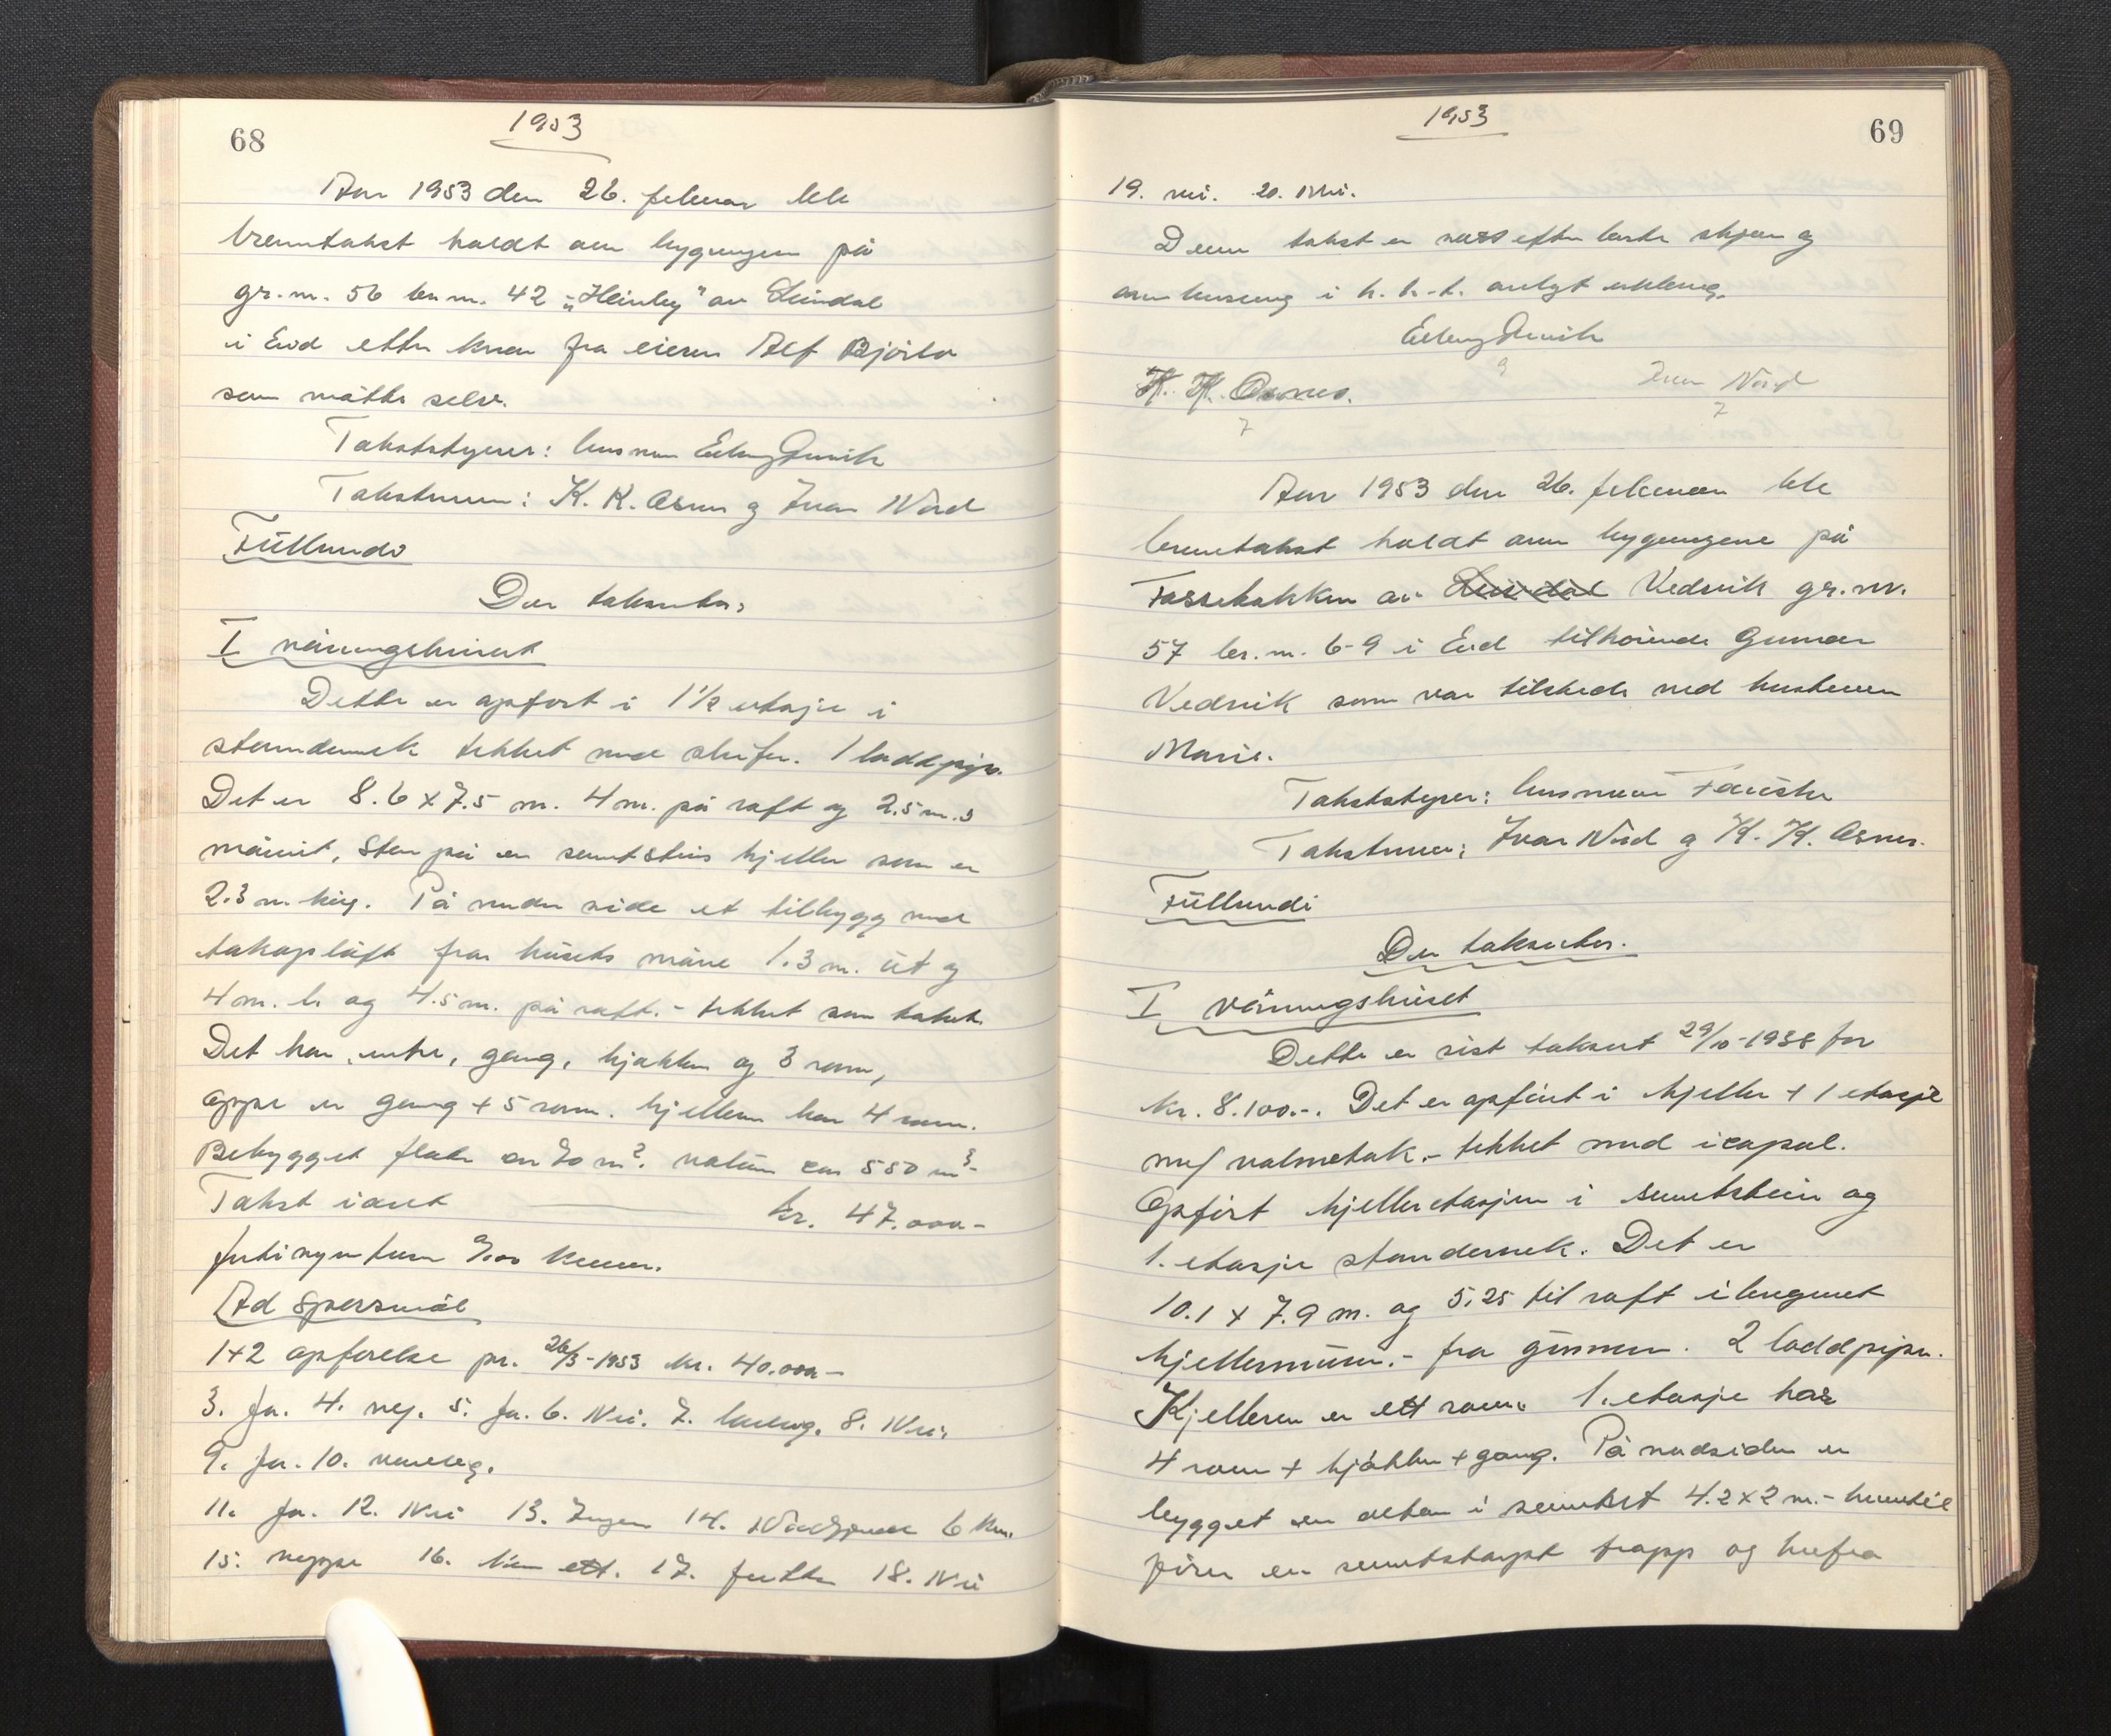 68
1953
Aar 1953 den 26. februar ble
branntakst holdt over bygningen på
gr.nr. 56 br.nr. 42 „Heimly" av Leirdal
i Eid etter krav fra eieren Alf Bjørlo
som møtte selv.
Takststyrer: lensmann Erling
Takstmenn: K. K. Osnes og Ivar Nord
Fúllmundi
Der takseter:
I våningshúset
Dette er opført i 1 1/2 etasje i
standerverk tekket med skifer. 1 loddpipe.
Det er 8.6 x 7.5 m. 4 m. på raft og 2.5 m.
mønit, Står på en sementsteins kjeller som er
2.3 m. høg. På nordre side et tilbygg med
takopløft fra húsets møne 1.3 m. út og
4 m. b. og 4.5 m. på raft. - tekket som taket.
Det har entre, gang, kjøkken og 3 rom,
Oppe er gang + 5 rom. kjelleren har 4 rom.
Bebygget flate ca 70 m². volúm ca 550 m³-
Takst i alt kr. 47.000-
førtisyv tusen 0/00 kroner.
Ad spørsmål
1+2 opførelse pr. 26/3-1953 kr. 40.000-
3. Ja. 4. nej. 5. Ja. 6. Nei. 7. 8. Nei.
9. Ja. 10. vanleg.
11. Ja. 12. Nei 13. Ingen 14. Nordfjordeid 6 km.
15. neppe 16. kun ett. 17. 18. Nei
1953
69
19. nei. 20. Nei.
Denne takst er satt efter beste skjøn og
overbevisning i h. h. t. avlagt erklæring.
Erling
K. K. Osnes. Ivar Nord
Aar 1953 den 26. februar ble
branntakst holdt over bygningene på
Fossebakken av Leirdal Vedvik gr.nr.
57 br.nr. 6-9 i Eid tilhørende Gunnar
Vedvik som var tilstede med hustruen
Marie.
Takststyrer: lensmann
Takstmenn: Ivar Nord og K. K. Osnes.
Fúllmundi
Der takseter.
I våningshúset
Dette er sist taksert 29/10-1938 for
kr. 8.100.-. Det er opført i kjeller + 1 etasje
m/ valmetak. - tekket med icopal.
Opført kjelleretasjen i sementstein og
1. etasje standerverk. Det er
10.1 x 7.9 m. og 5.25 til raft iberegnet
kjellermúren. - fra grúnnen. 2 loddpiper.
Kjelleren er ett rom. 1. etasje har
4 rom + kjøkken + gang. På nordsiden er
bygget en altan i sement 4.2 x 2 m. - hvortil
fører en sementstøpt trapp og herfra